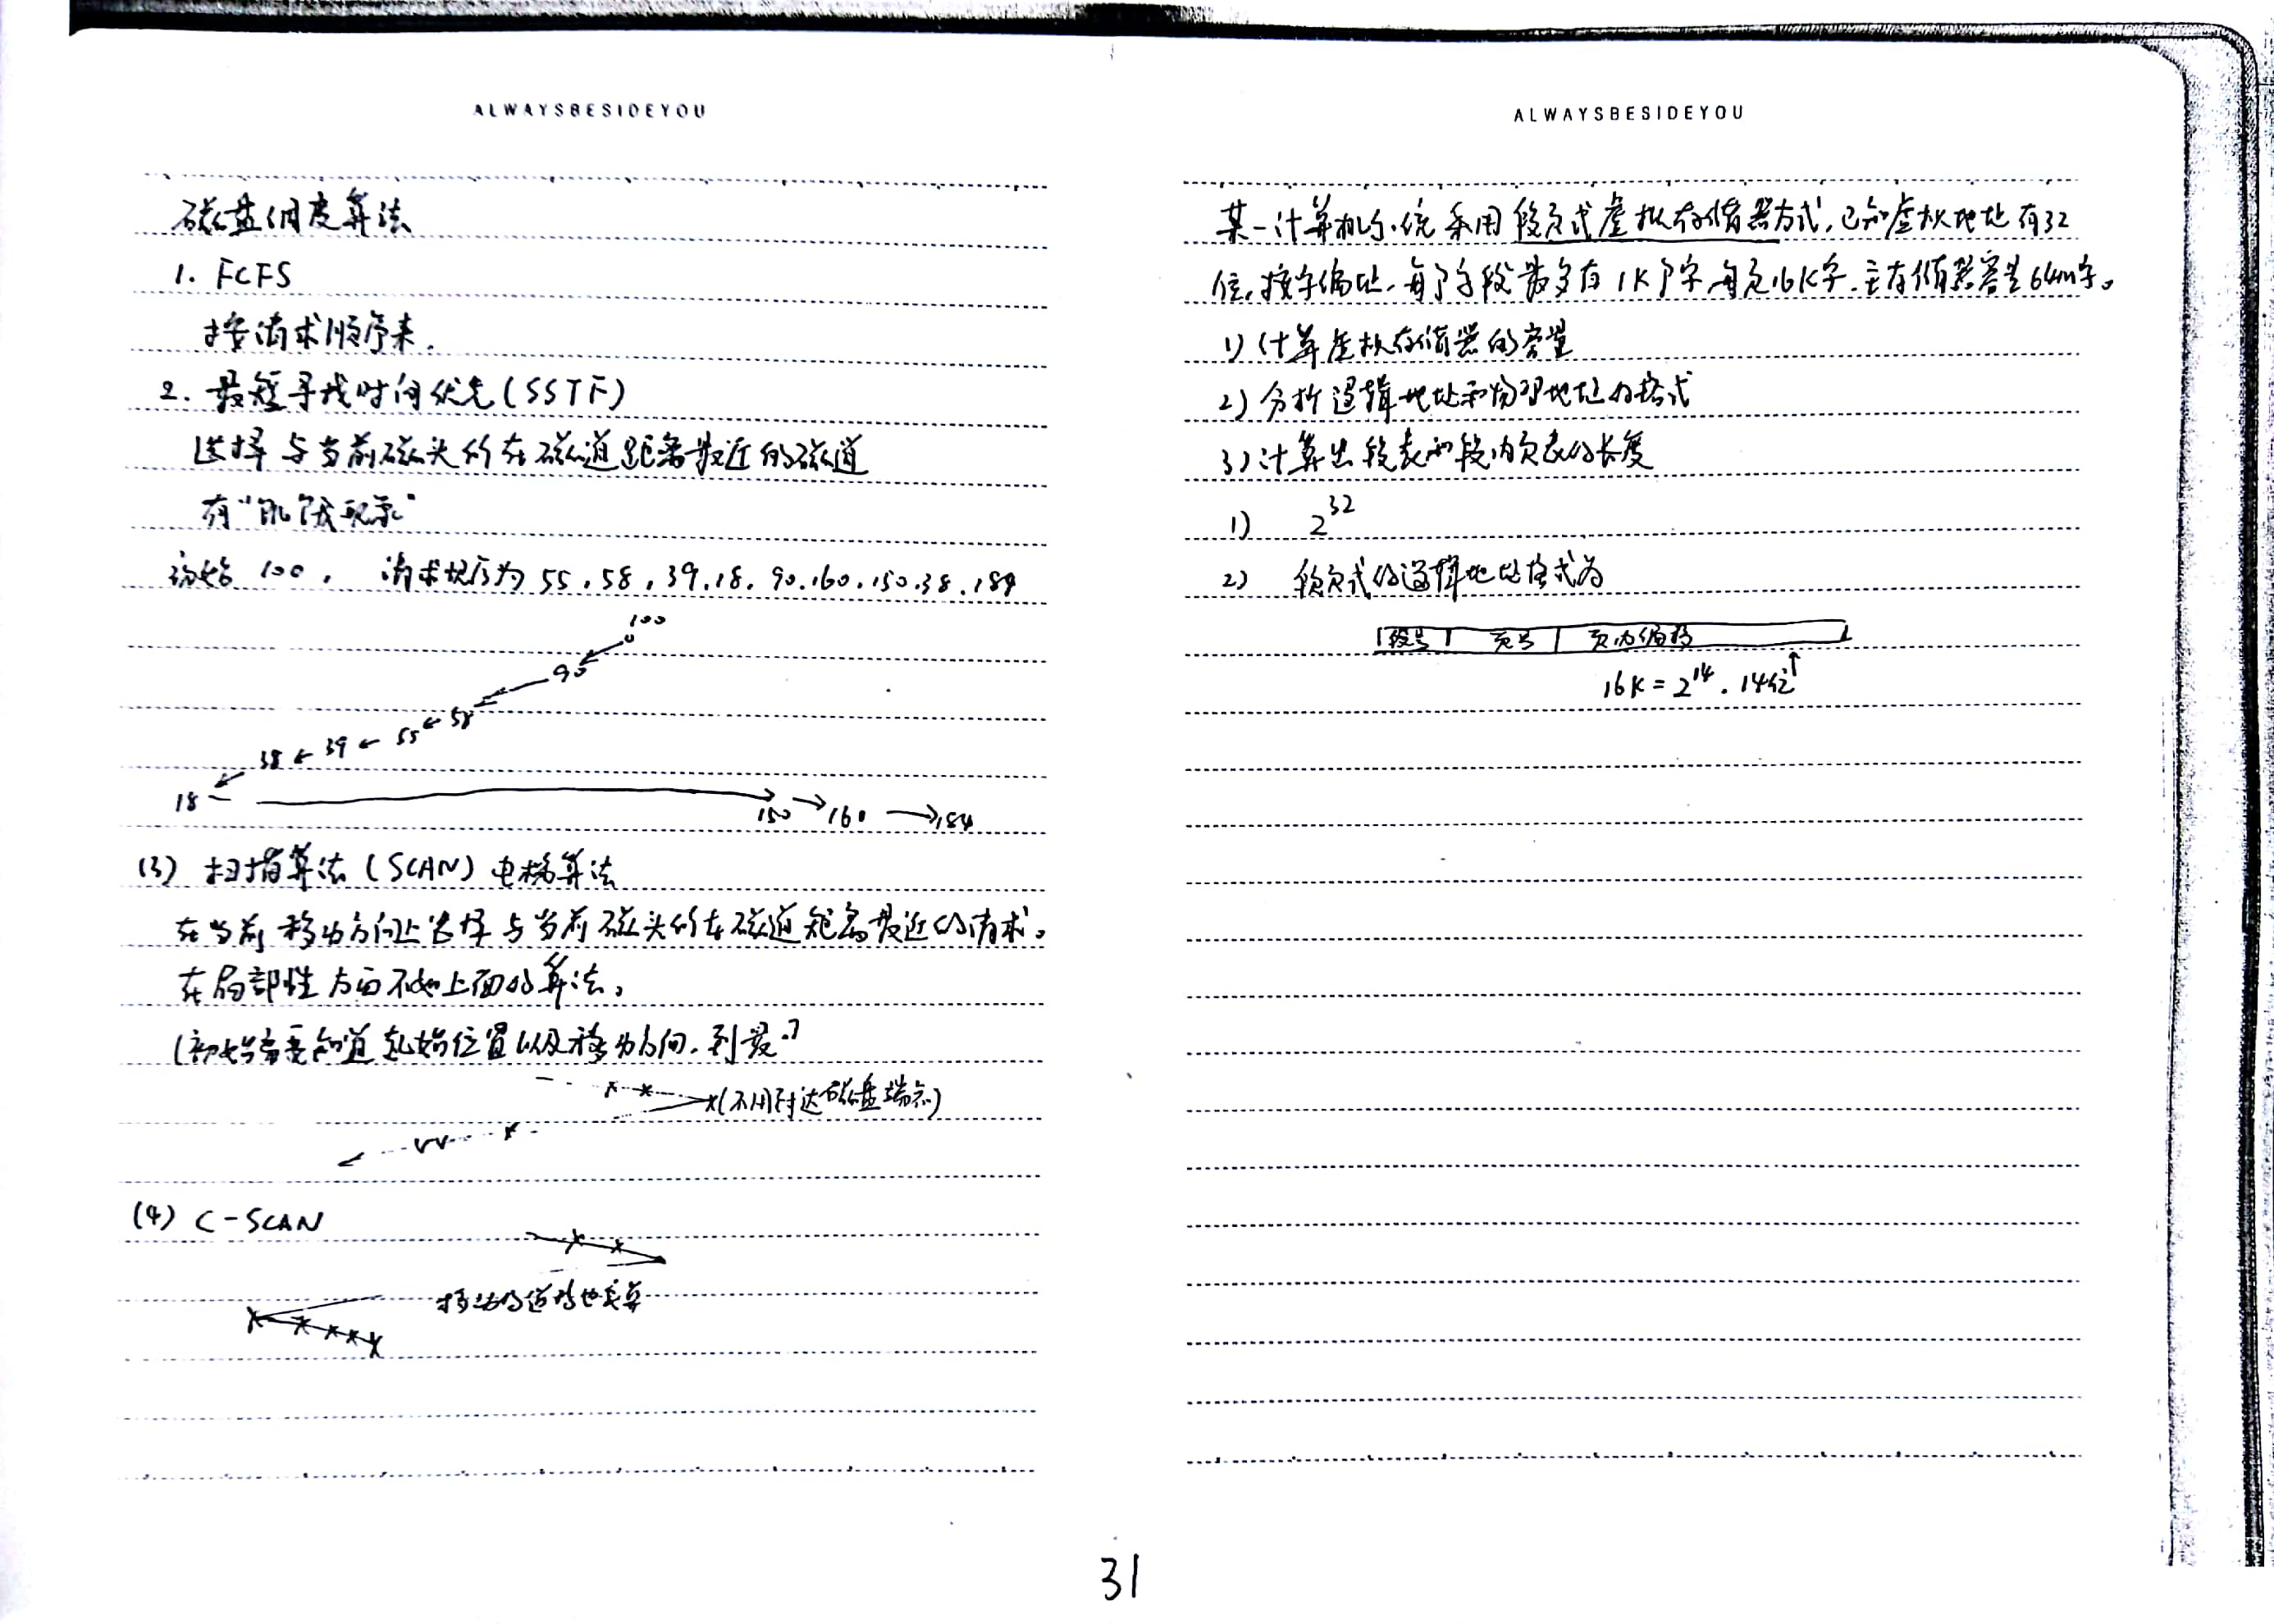 ALWAYSBESIDEYOU
磁盘调度算法
1. FCFS
按请求顺序来.
2. 最短寻找时间优先(SSTF)
选择与当前磁头所在磁道距离最近的磁道
有"饥饿现象"
初始 100, 请求顺序为 55, 58, 39, 18, 90, 160, 150, 38, 184
100
90
58
38 ← 39 ← 55 ←
18 → 150 → 160 → 184
(3) 扫描算法(SCAN) 电梯算法
在当前移动方向上选择与当前磁头所在磁道距离最近的请求。
在局部性方面不如上面的算法。
(初始需要知道起始位置以及移动方向.到最
(不用到达磁盘端点)
(4) C-SCAN
移动的道数也要算
ALWAYSBESIDEYOU
某一计算机系统采用段页式虚拟存储器方式,已知虚拟地址有32
位,按字编址,每个段最多有1K个字,每页16K字,主存储器容量64M字。
1) 计算虚拟存储器的容量
2) 分析逻辑地址和物理地址的格式
3) 计算出段表和段内页表的长度
1) 2^32
2) 段页式的逻辑地址格式为
段号 页号 页内偏移
16K = 2^14. 14位↑
31